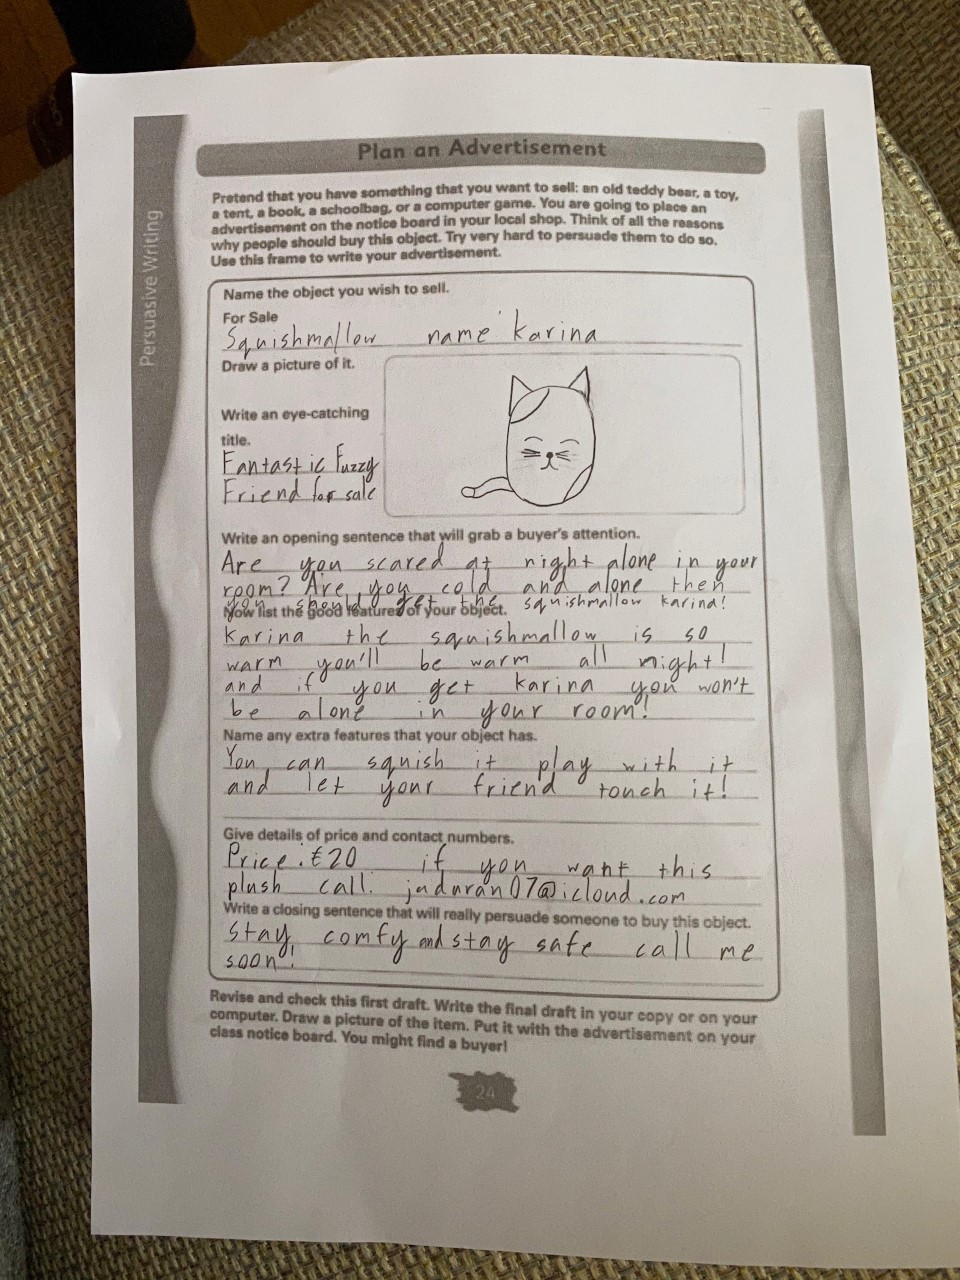 Plan an Advertisement
Persuasive Writing
Pretend that you have something that you want to sell: an old teddy bear, a toy,
a tent, a book, a schoolbag, or a computer game. You are going to place an
advertisement on the notice board in your local shop. Think of all the reasons
why people should buy this object. Try very hard to persuade them to do so.
Use this frame to write your advertisement.
Name the object you wish to sell.
For Sale
Squishmallow name karina
Draw a picture of it.
Write an eye-catching
title.
Fantastic Fuzzy
Friend for sale
Write an opening sentence that will grab a buyer's attention.
Are you scared at night alone in your
room? Are you cold and alone then
you should get the squishmallow karina!
Now list the good features of your object.
karina the squishmallow is so
warm you'll be warm all night!
and if you get karina you won't
be alone in your room!
Name any extra features that your object has.
You can squish it play with it
and let your friend touch it!
Give details of price and contact numbers.
Price: £20 if you want this
plush call: jaduran07@icloud.com
Write a closing sentence that will really persuade someone to buy this object.
Stay, comfy and stay safe call me
soon!
Revise and check this first draft. Write the final draft in your copy or on your
computer. Draw a picture of the item. Put it with the advertisement on your
class notice board. You might find a buyer!
24